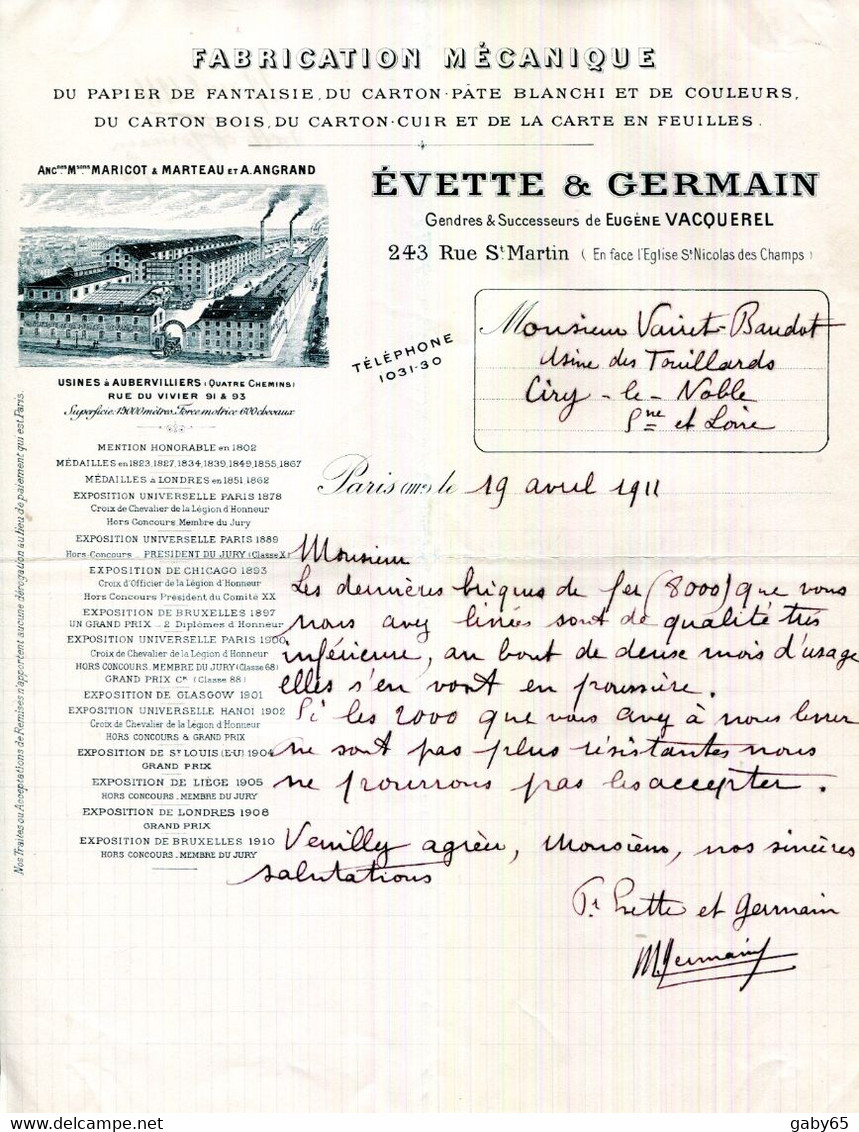 FABRICATION MÉCANIQUE
DU PAPIER DE FANTAISIE, DU CARTON-PÂTE BLANCHI ET DE COULEURS,
DU CARTON BOIS, DU CARTON-CUIR ET DE LA CARTE EN FEUILLES.
ANC.NES M.SONS MARICOT & MARTEAU ET A. ANGRAND
ÉVETTE & GERMAIN
Gendres & Successeurs de EUGÈNE VACQUEREL
243 Rue St Martin (En face l'Eglise St Nicolas des Champs)
TÉLÉPHONE
1031-30
Monsieur Vairet-Baudot
Usine des Touillards
Ciry-le-Noble
Sne et Loire
USINES à AUBERVILLIERS (QUATRE CHEMINS)
RUE DU VIVIER 91 & 93
Superficie: 19.000 mètres. Force motrice 600 chevaux
MENTION HONORABLE en 1802
MÉDAILLES en 1823, 1827, 1834, 1839, 1849, 1855, 1867
MÉDAILLES à LONDRES en 1851, 1862
EXPOSITION UNIVERSELLE PARIS 1878
Croix de Chevalier de la Légion d'Honneur
Hors Concours, Membre du Jury
EXPOSITION UNIVERSELLE PARIS 1889
Hors-Concours - PRÉSIDENT DU JURY (Classe X)
EXPOSITION DE CHICAGO 1893
Croix d'Officier de la Légion d'Honneur
Hors Concours Président du Comité XX
EXPOSITION DE BRUXELLES 1897
UN GRAND PRIX - 2 Diplômes d'Honneur
EXPOSITION UNIVERSELLE PARIS 1900
Croix de Chevalier de la Légion d'Honneur
HORS CONCOURS, MEMBRE DU JURY (Classe 68)
GRAND PRIX Cif (Classe 88)
EXPOSITION DE GLASGOW 1901
EXPOSITION UNIVERSELLE HANOI 1902
Croix de Chevalier de la Légion d'Honneur
HORS CONCOURS & GRAND PRIX
EXPOSITION DE ST LOUIS (E-U) 1904
GRAND PRIX
EXPOSITION DE LIÈGE 1905
HORS CONCOURS - MEMBRE DU JURY
EXPOSITION DE LONDRES 1908
GRAND PRIX
EXPOSITION DE BRUXELLES 1910
HORS CONCOURS - MEMBRE DU JURY
Nos Traites ou Acceptations de Remises n'apportent aucune dérogation au lieu de paiement qui est Paris.
Paris (IIIe) le 19 avril 1911
Monsieur
Les dernières briques de fer (8000) que vous
nous avez livrées sont de qualité très
inférieure, au bout de deux mois d'usage
elles s'en vont en poussière.
Si les 2000 que vous avez à nous livrer
ne sont pas plus résistantes nous
ne pourrons pas les accepter.
Veuillez agréer, Monsieur, nos sincères
salutations
Pr Evette et Germain
M. Germain
delcampe.net
gaby65